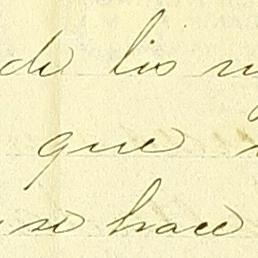 de los
que
se hace